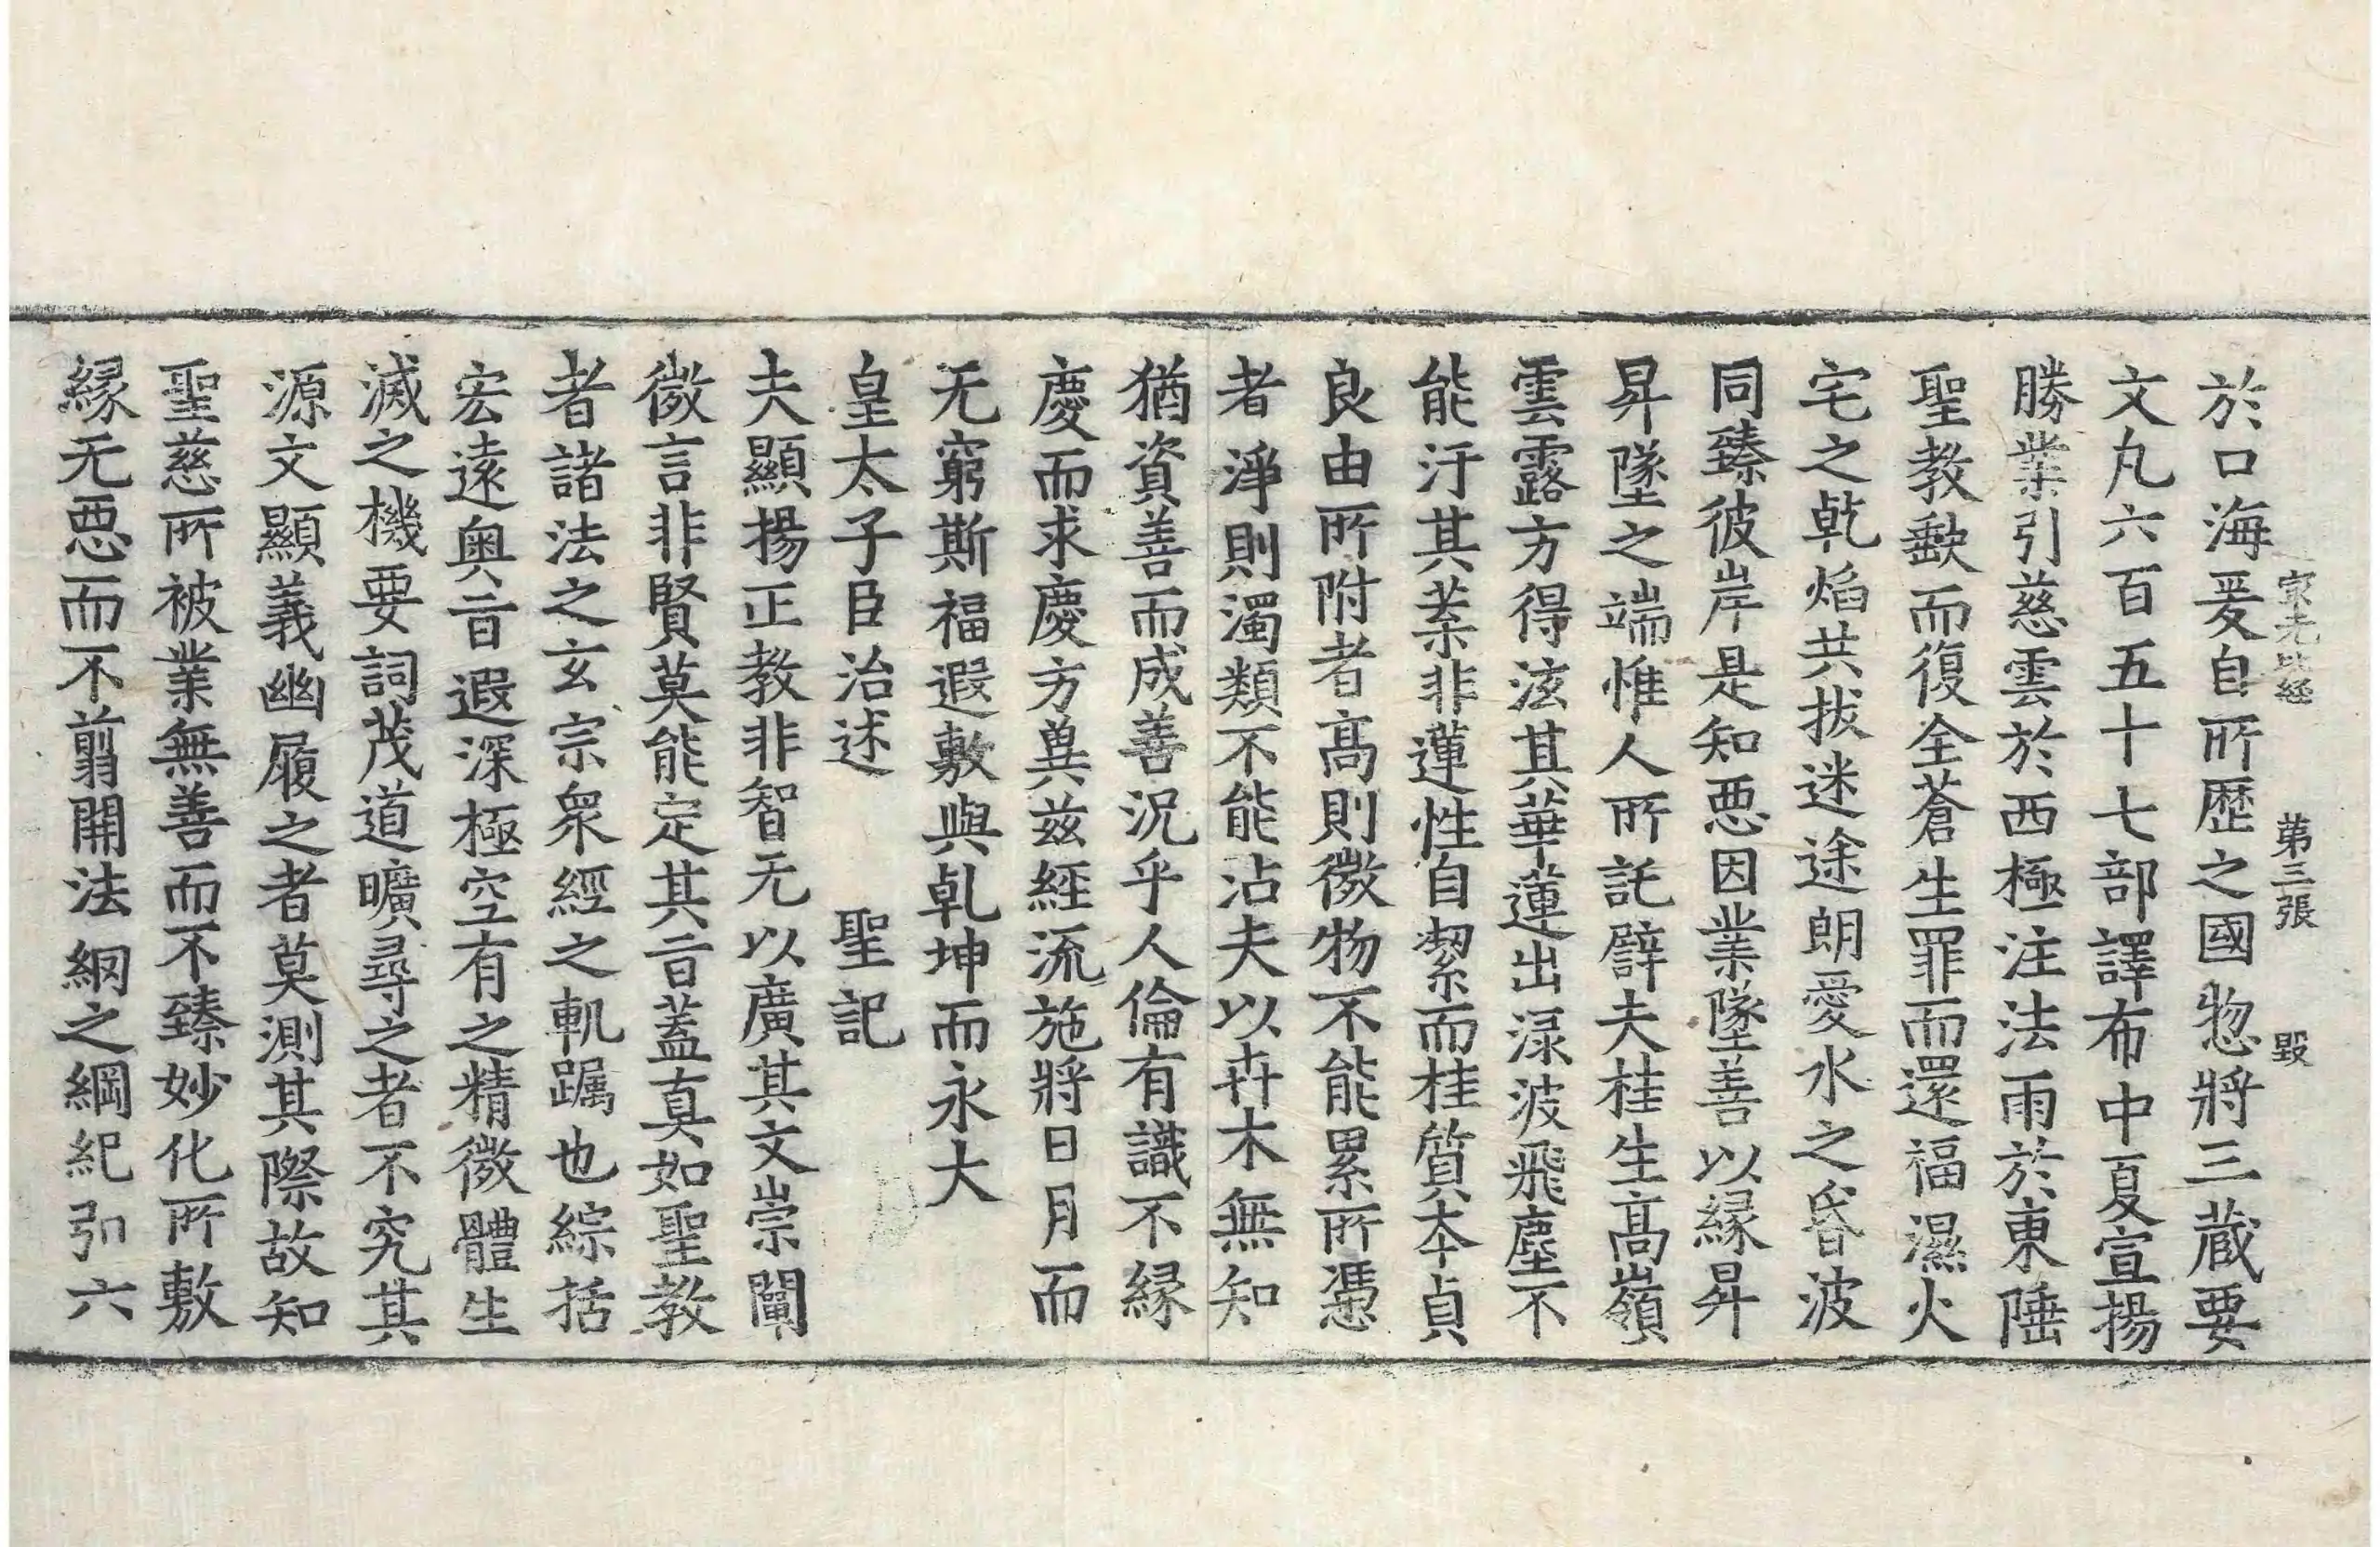 第三張 毀
於口海爰自所歷之國惣將三蔵要
文凡六百五十七部譯布中夏宣揚
勝業引慈雲於西極注法雨於東陲
聖教歔而復全蒼生罪而還福濕火
宅之乾焰共拔迷途朗愛水之昏波
同臻彼岸是知惡因業墜善以緣昇
昇墜之端惟人所託譬夫桂生髙嶺
雲露方得泫其華蓮出渌波飛塵不
能汙其葉非蓮性自潔而桂質夲貞
良由所附者髙則微物不能累所憑
者淨則濁類不能沾夫以卉木無知
猶資善而成善況乎人倫有識不緣
慶而求慶方兾兹經流施將日月而
无窮斯福遐敷與乹坤而永大
皇太子臣治述 聖記
夫顯揚正教非智无以廣其文崇闡
微言非賢莫能定其㫖盖真如聖教
者諸法之玄宗衆經之軌躅也綜括
宏遠奧㫖遐深極空有之精微體生
滅之機要詞茂道曠尋之者不究其
源文顯義幽履之者莫測其際故知
聖慈所被業無善而不臻妙化所敷
緣无惡而不翦開法網之綱紀引六